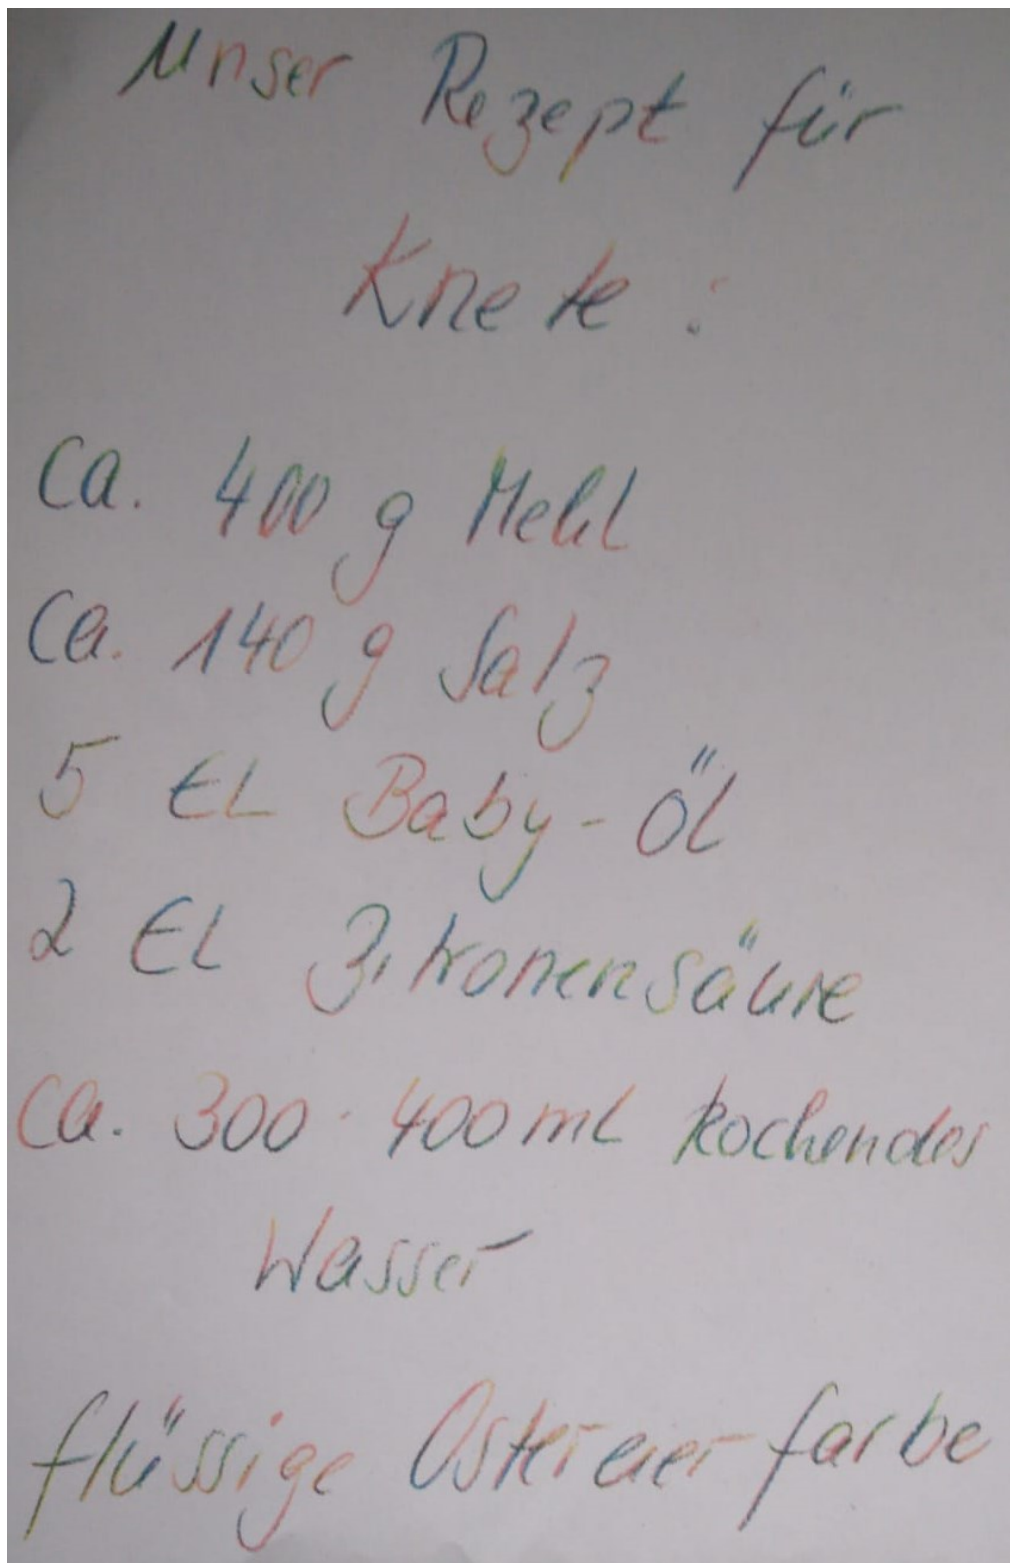 Unser Rezept für
Knete :
Ca. 400 g Mehl
Ca. 140 g Salz
5 EL Baby-Öl
2 EL Zitronensäure
Ca. 300-400 ml kochendes
Wasser
flüssige Ostereierfarbe